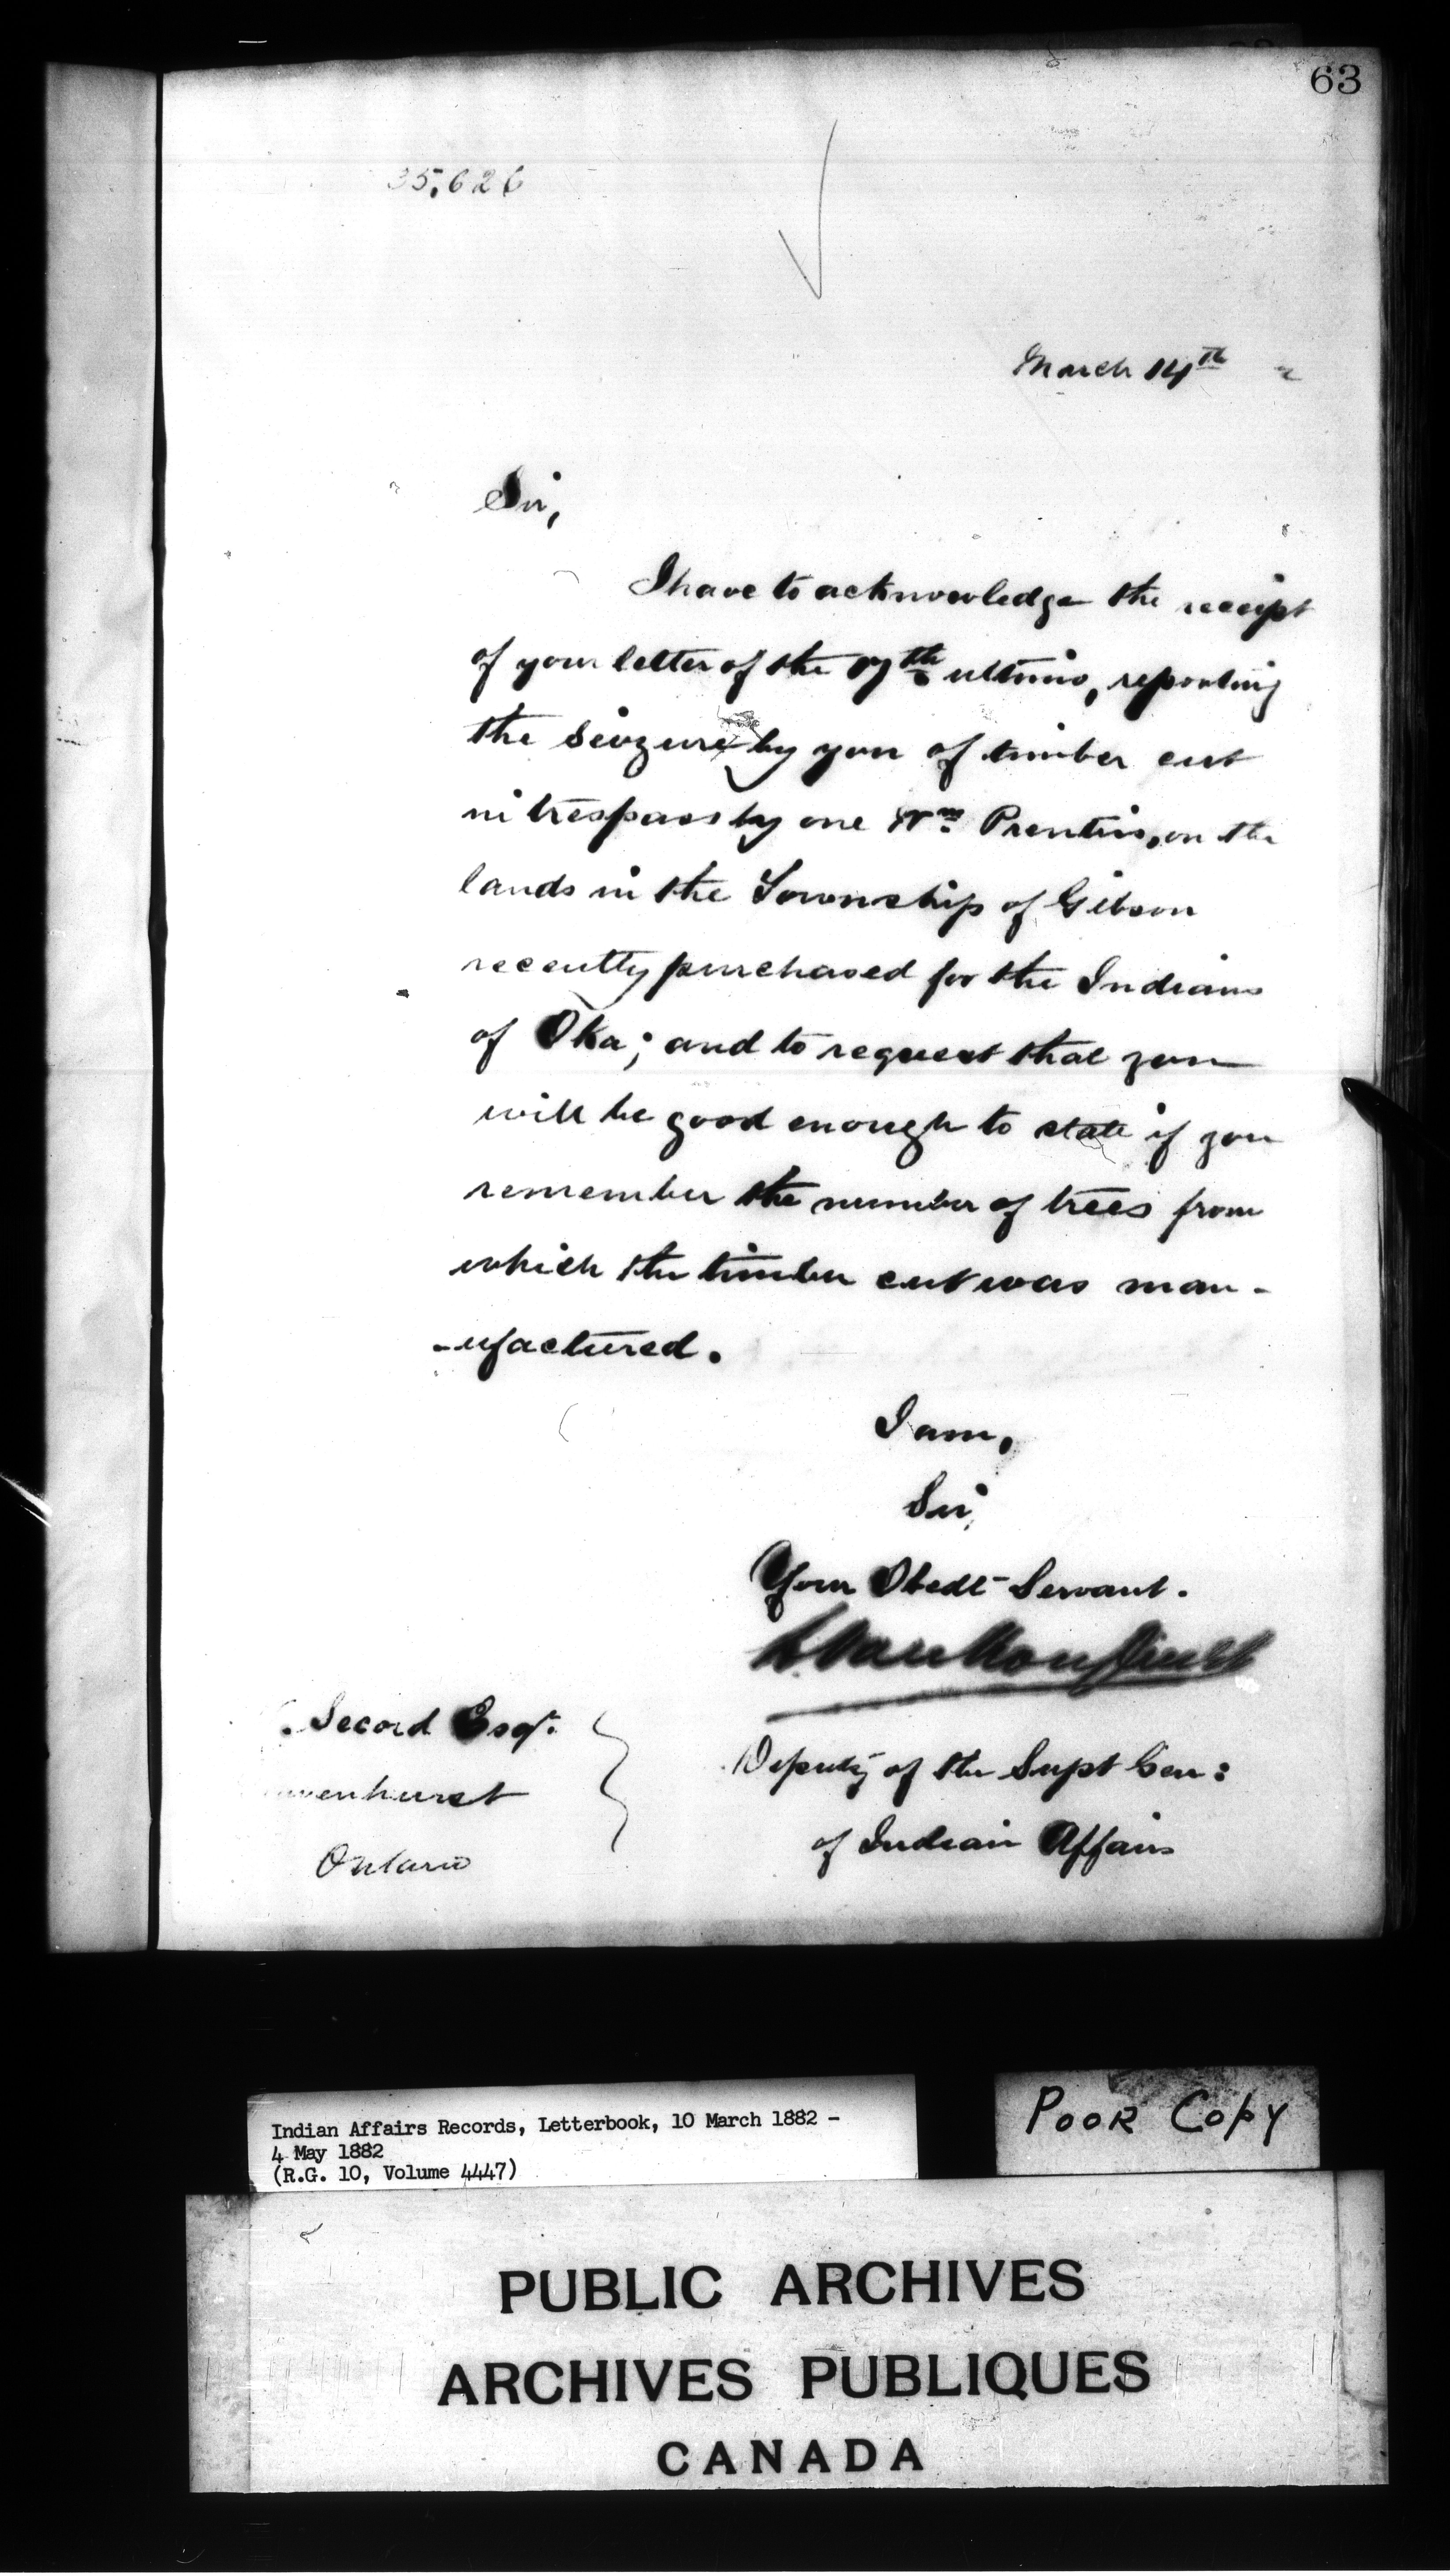 63
35,626
March 14th 2
Sir,
I have to acknowledge the receipt
of your letter of the 17th ultimo, reporting
the seizure by you of timber cut
in trespass by one Wm. Prentis, on the
lands in the Township of Gibson
recently purchased for the Indians
of Oka; and to request that you
will be good enough to state if you
remember the number of trees from
which the timber cut was man-
-ufactured.
I am,
Sir,
Your Obedt Servant.
Deputy of the Supt Gen:
of Indian Affairs
Secord Esqr.
venhurst
Ontario
Indian Affairs Records, Letterbook, 10 March 1882 -
4 May 1882
(R.G. 10, Volume 4447)
POOR COPY
PUBLIC ARCHIVES
ARCHIVES PUBLIQUES
CANADA